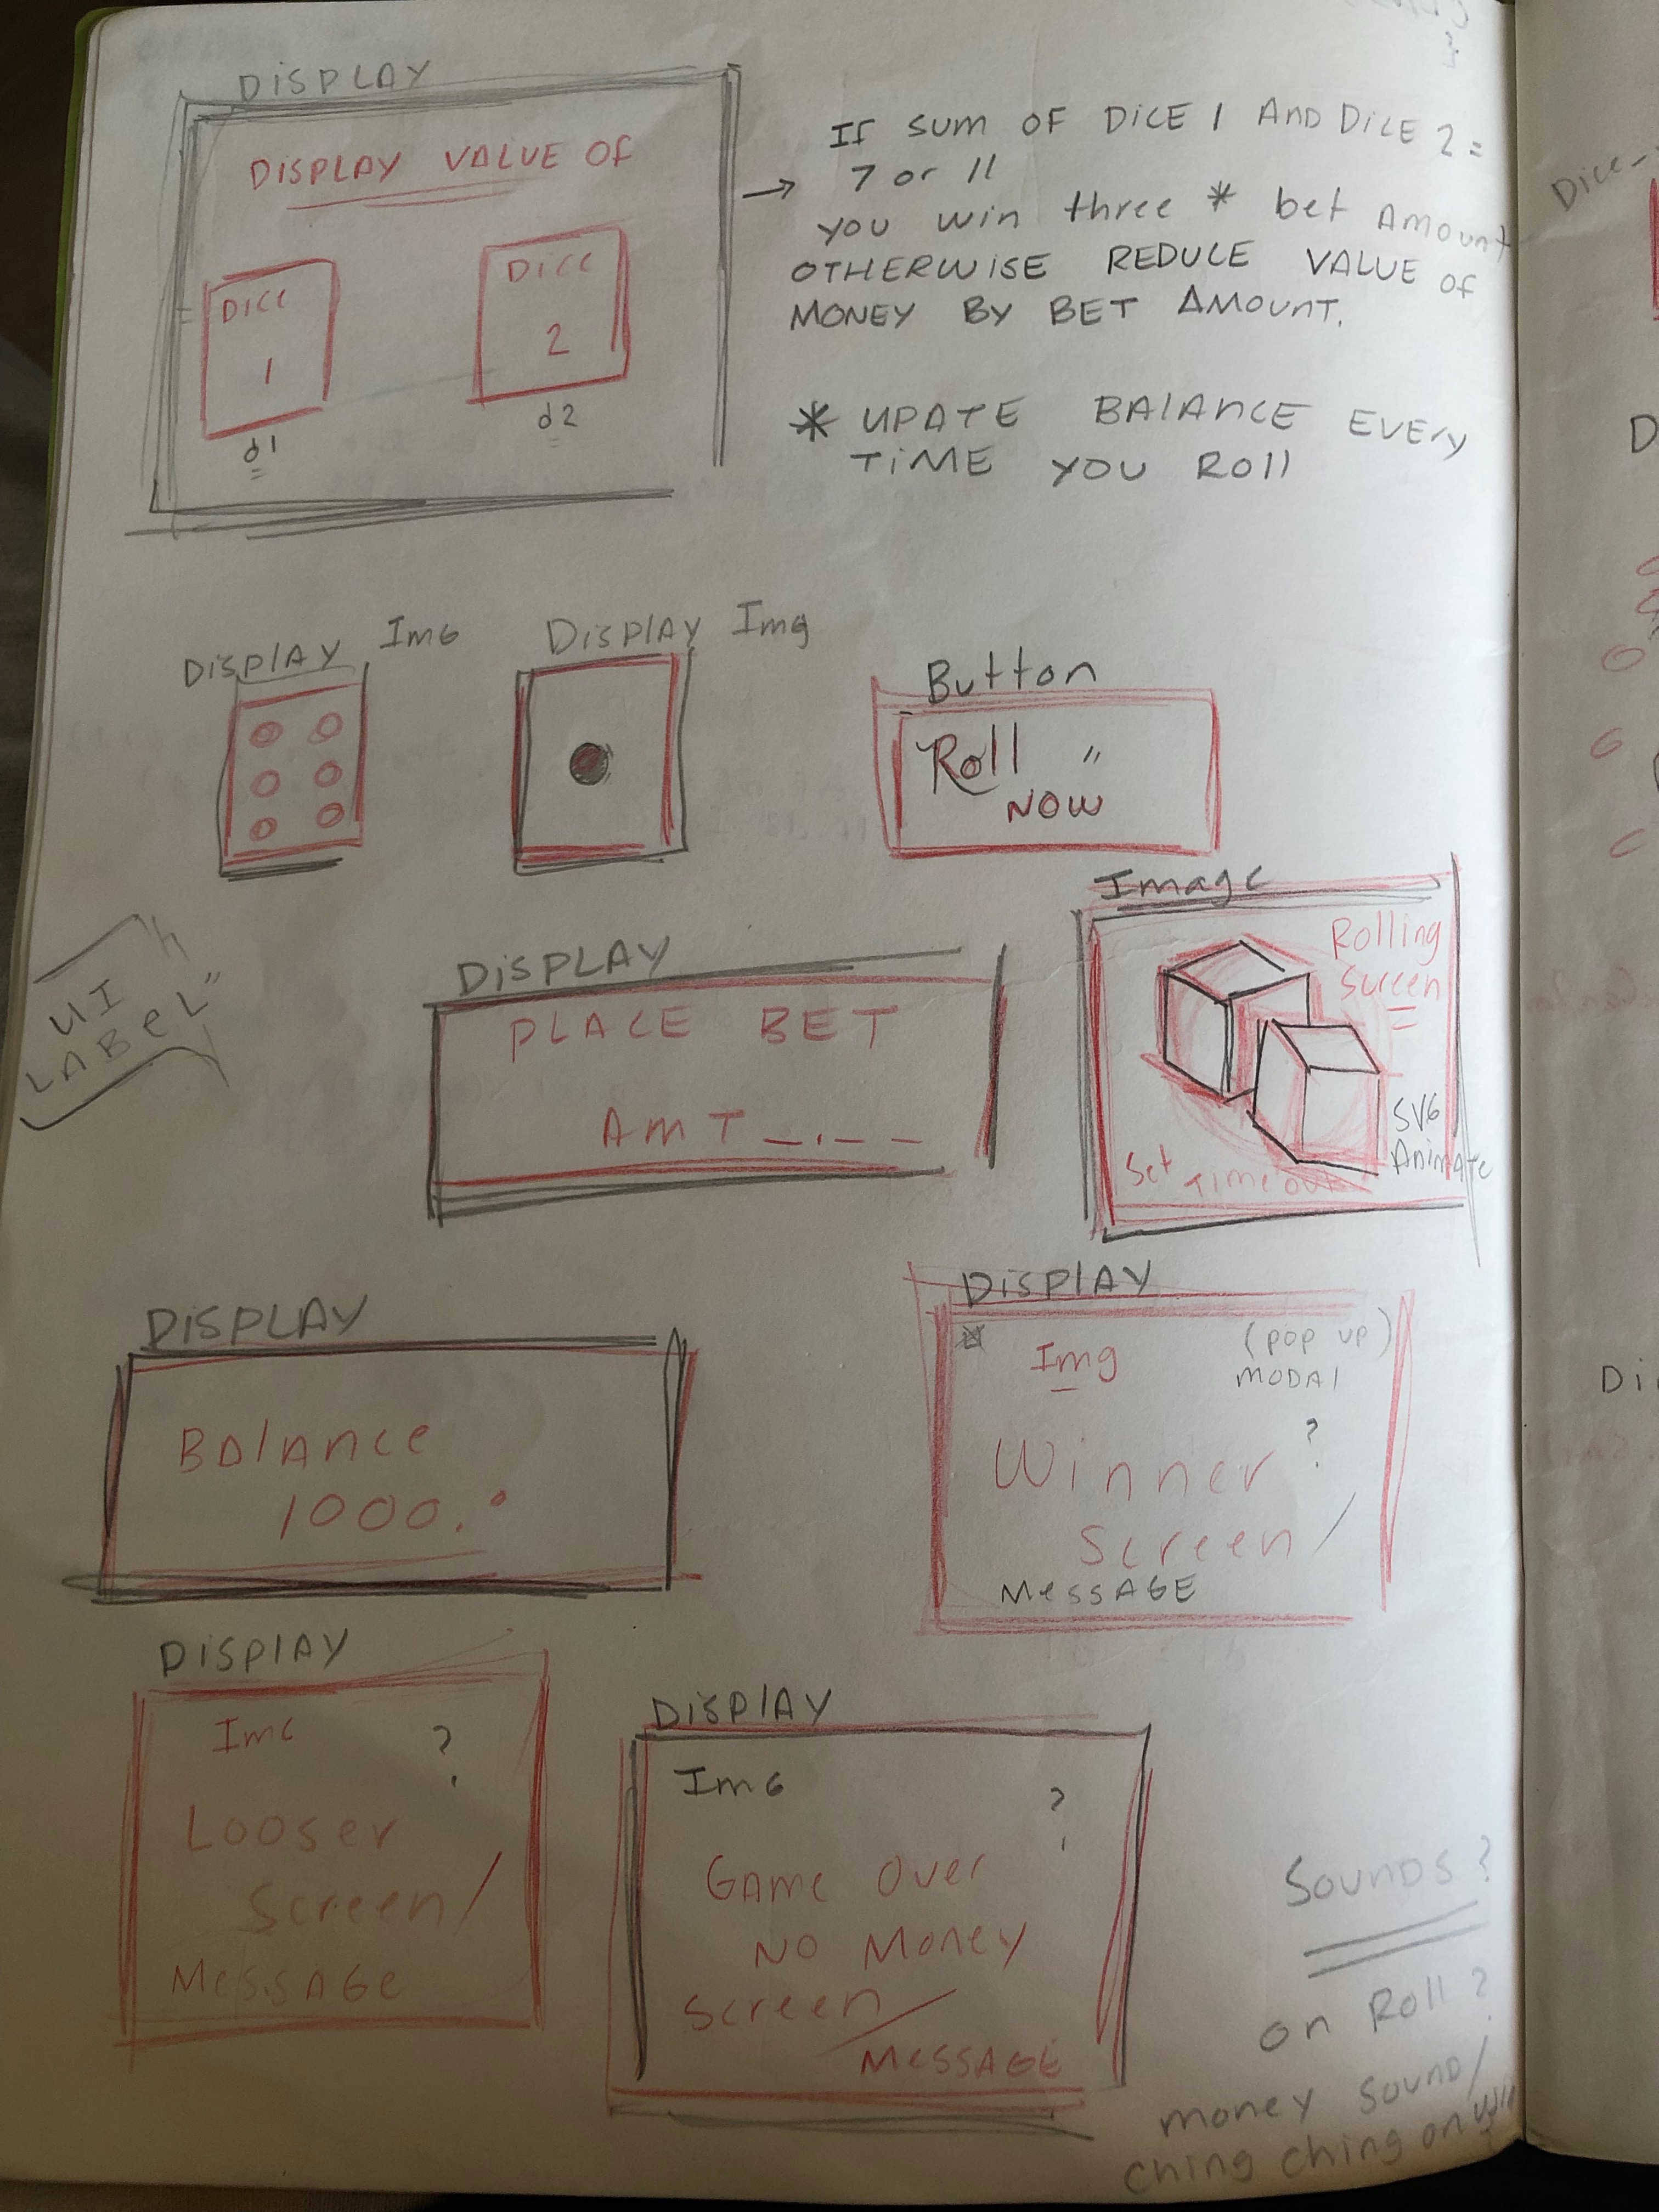 DISPLAY
DISPLAY VALUE OF
DICE 1
d1
DICE 2
d2
→ IF SUM OF DICE 1 AND DICE 2 =
7 or 11
YOU WIN three * bet AMOUNT
OTHERWISE REDUCE VALUE OF
MONEY BY BET AMOUNT.
* UPATE BALANCE EVERY
TIME YOU ROLL
DISPLAY IMG
DISPLAY Img
Button
Roll "
NOW
UI
LABEL"
DISPLAY
PLACE BET
AMT _._ _
Image
Rolling
Screen
SVG
ANIMATE
Set Timeout
DISPLAY
BALANCE
1000.0
DISPLAY
Img
(POP UP)
MODAL
Winner ?
Screen/
MESSAGE
DISPLAY
IMG ?
Looser
Screen/
MESSAGE
DISPLAY
IMG ?
GAME OVER
NO MONEY
Screen/
MESSAGE
Sounds?
on Roll?
money sound/
ching ching on Win
Dice
D
Di